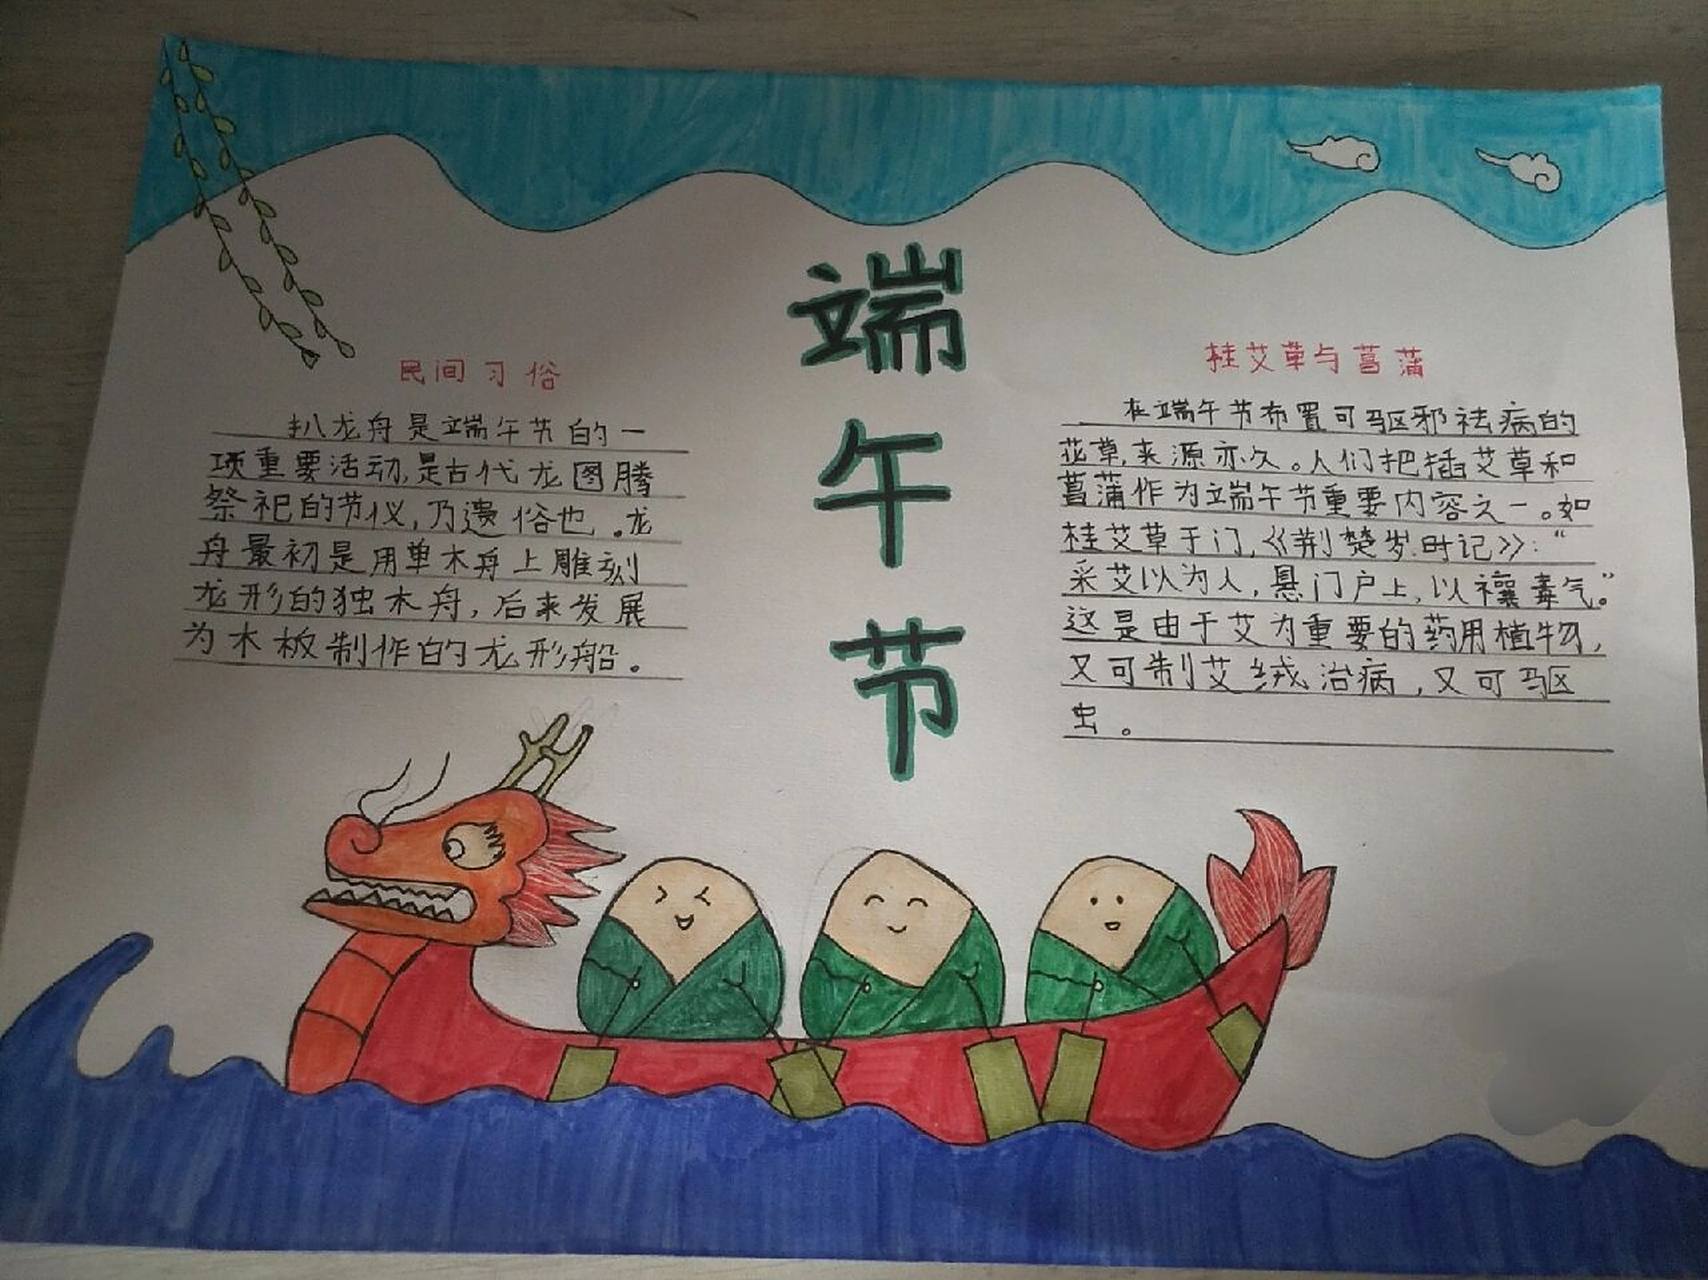 端午节
民间习俗
扒龙舟是端午节的一
项重要活动,是古代龙图腾
祭祀的节仪,乃遗俗也。龙
舟最初是用单木舟上雕刻
龙形的独木舟,后来发展
为木板制作的龙形船。
桂艾草与菖蒲
在端午节布置可驱邪祛病的
花草,来源亦久。人们把插艾草和
菖蒲作为端午节重要内容之一。如
桂艾草于门,《荆楚岁时记》:“
采艾以为人,悬门户上,以禳毒气。”
这是由于艾为重要的药用植物,
又可制艾绒治病,又可驱
虫。